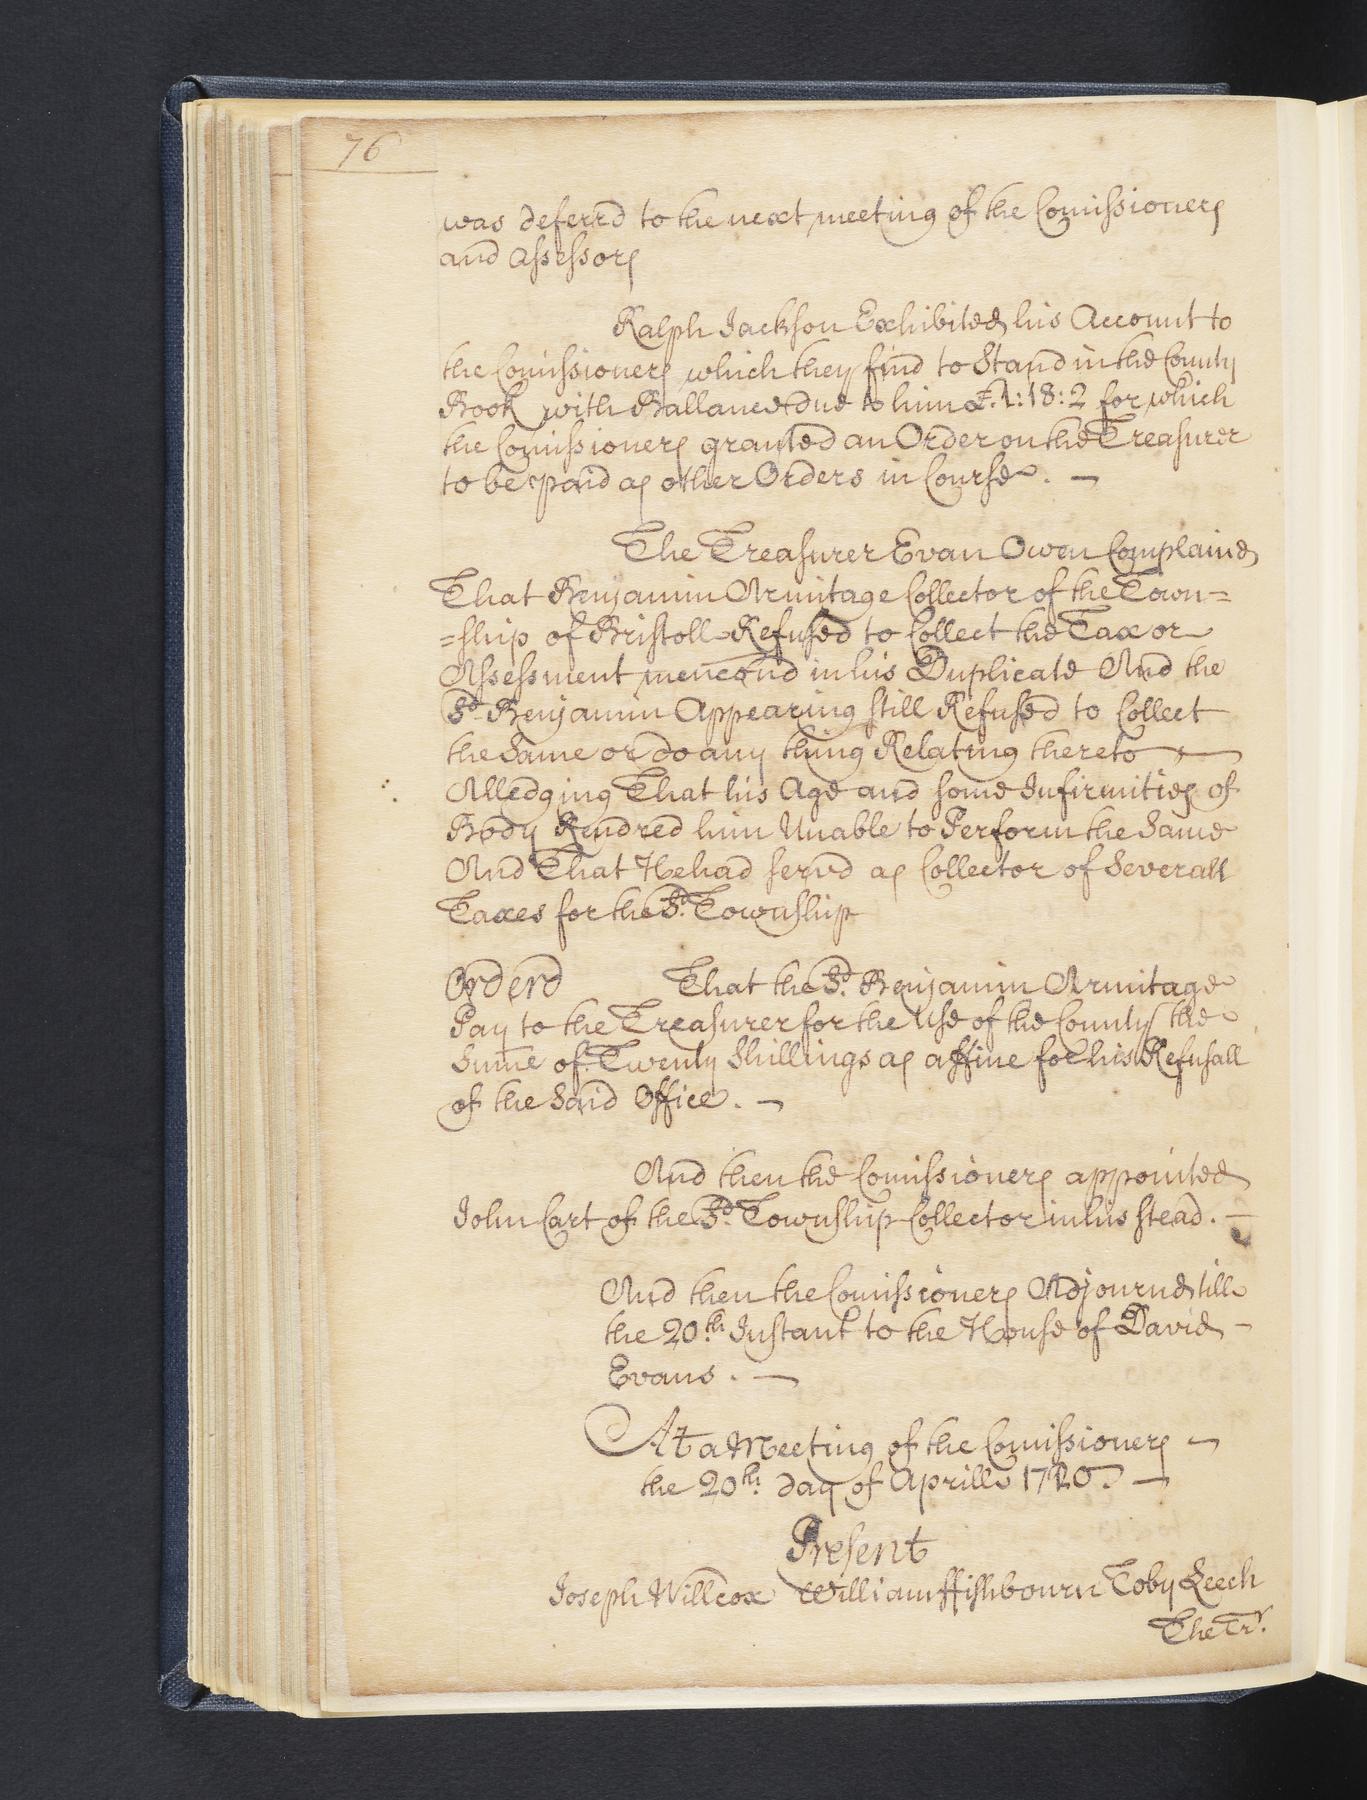 76
was deferrd to the next meeting of the Comissioners
and Assessors
Ralph Jackson Exhibited his Account to
the Comissioners which they find to Stand in the County
Book with Ballance due to him £.1:18:2 for which
the Comissioners granted an Order on the Treasurer
to be paid as other Orders in Course. —
The Treasurer Evan Owen Complaind
That Benjamin Armitage Collector of the Town=
=ship of Bristoll Refused to Collect the Tax or
Assessment mencond in his Duplicate And the
Sd. Benjamin Appearing still Refused to Collect
the Same or do any thing Relating thereto —
Alledging That his Age and some Infirmities of
Body Rendred him Unable to Perform the Same
And That He had servd as Collector of Severall
Taxes for the Sd. Township
Orderd That the Sd. Benjamin Armitage
Pay to the Treasurer for the Use of the County the
Sume of Twenty Shillings as a ffine for his Refusall
of the Said Office. —
And then the Comissioners appointed
John Cart of the Sd. Township Collector in his stead. —
And then the Comissioners Adjournd till
the 20th. Instant to the House of David —
Evans. —
At a Meeting of the Comissioners —
the 20th. day of Aprill 1720. —
Present
Joseph Willcox William ffishbourn Toby Leech
The Trr.